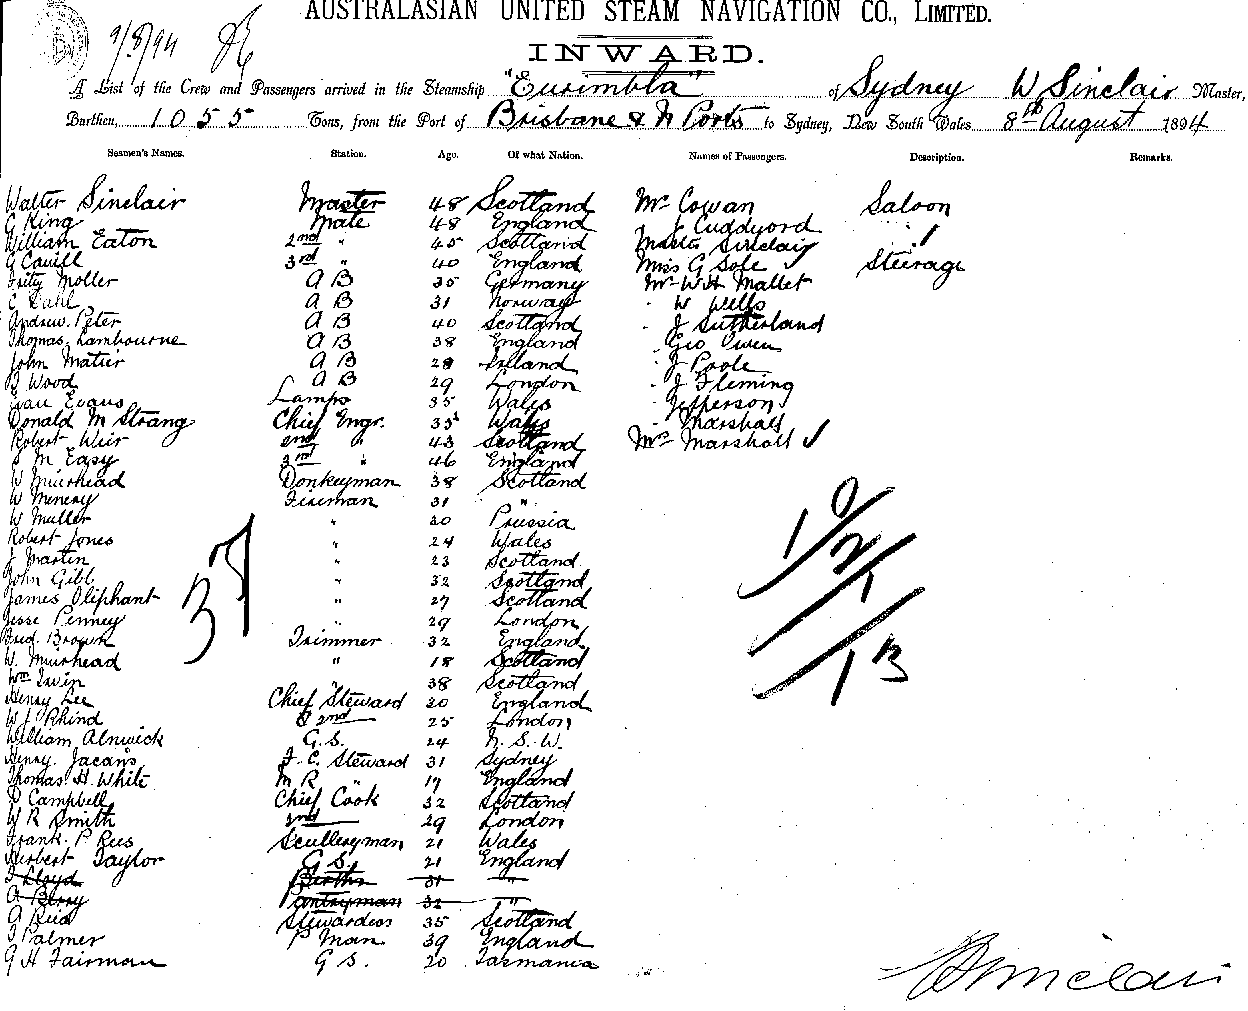 AUSTRALASIAN UNITED STEAM NAVIGATION CO., LIMITED.
9/8/94
INWARD.
A List of the Crew and Passengers arrived in the Steamship "Eurimbla" of Sydney W Sinclair Master,
Burthen, 1055 Tons, from the Port of Brisbane & N Ports to Sydney, New South Wales 8th August 1894
Seamen's Names. Station. Age. Of what Nation. Names of Passengers. Description. Remarks.
Walter Sinclair Master 48 Scotland Mr Cowan Saloon
G King Mate 48 England J Cuddyord
William Eaton 2nd " 45 Scotland Master Sinclair /
G Cavill 3rd " 40 England Miss G Sole Steerage
Fritz Moller A B 35 Germany Mr W H Mallet
C Dahl A B 31 Norway " W Wells
Andrew Peter A B 40 Scotland " J Sutherland
Thomas Lambourne A B 38 England " Geo Owen
John Matier A B 28 Ireland " J Poole
Wood A B 29 London " J Fleming
Evan Evans Lamps 35 Wales " Jefferson
Donald M Strang Chief Engr. 35 Wales " Marshall
Robert Weir 2nd " 43 Scotland Mrs Marshall
M Easy 3rd " 46 England
W Muirhead Donkeyman 38 Scotland
W Menery Fireman 31 "
W Muller " 20 Prussia
Robert Jones " 24 Wales
J Martin " 23 Scotland
John Gibb " 32 Scotland
James Oliphant " 27 Scotland
Jesse Penney " 29 London
Fred. Brown Trimmer 32 England
W. Muirhead " 18 Scotland
Wm Irwin " 38 Scotland
Henry Lee Chief Steward 20 England
W J Rhind 2nd 25 London
William Alnwick G.S. 24 N.S.W.
Henry Jacans F.C. Steward 31 Sydney
Thomas H. White M R " 17 England
D Campbell Chief Cook 32 Scotland
W R Smith 2nd 29 London
Frank P Rees Sculleryman 21 Wales
Herbert Taylor G.S. 21 England
Lloyd 31 "
A Berry Pantryman 32 "
A Reid Stewardess 35 Scotland
Palmer P Man 39 England
G H Fairman G S. 20 Tasmania
37
10
2
1
13
W Sinclair